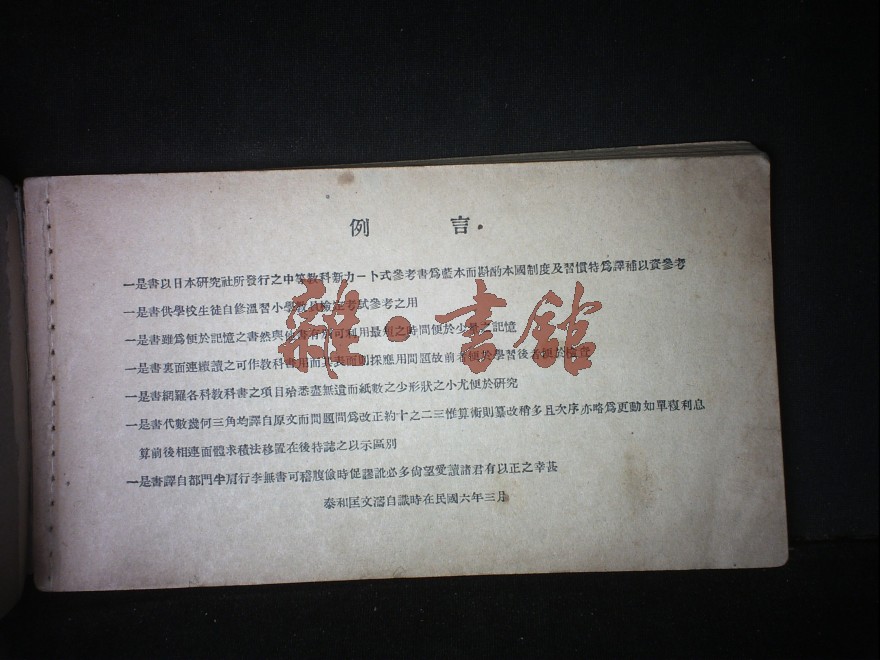 例言
一是書以日本研究社所發行之中等教科新力一卜式參考書爲藍本而斟酌本國制度及習慣特爲譯補以資參考
一是書供學校生徒自修溫習小學教員檢定考試參考之用
一是書雖爲便於記憶之書然與他書有別可利用最短之時間便於少量之記憶
一是書裏面連續讀之可作教科書用而其表面則採應用問題故前者便於學習後者便於檢查
一是書網羅各科教科書之項目殆悉盡無遺而紙數之少形狀之小尤便於研究
一是書代數幾何三角均譯自原文而問題間爲改正約十之二三惟算術則纂改稍多且次序亦略爲更動如單複利息
算前後相連面體求積法移置在後特誌之以示區別
一是書譯自都門半肩行李無書可稽腹儉時促謬訛必多尙望愛讀諸君有以正之幸甚
泰和匡文濤自識時在民國六年三月
雜·書館